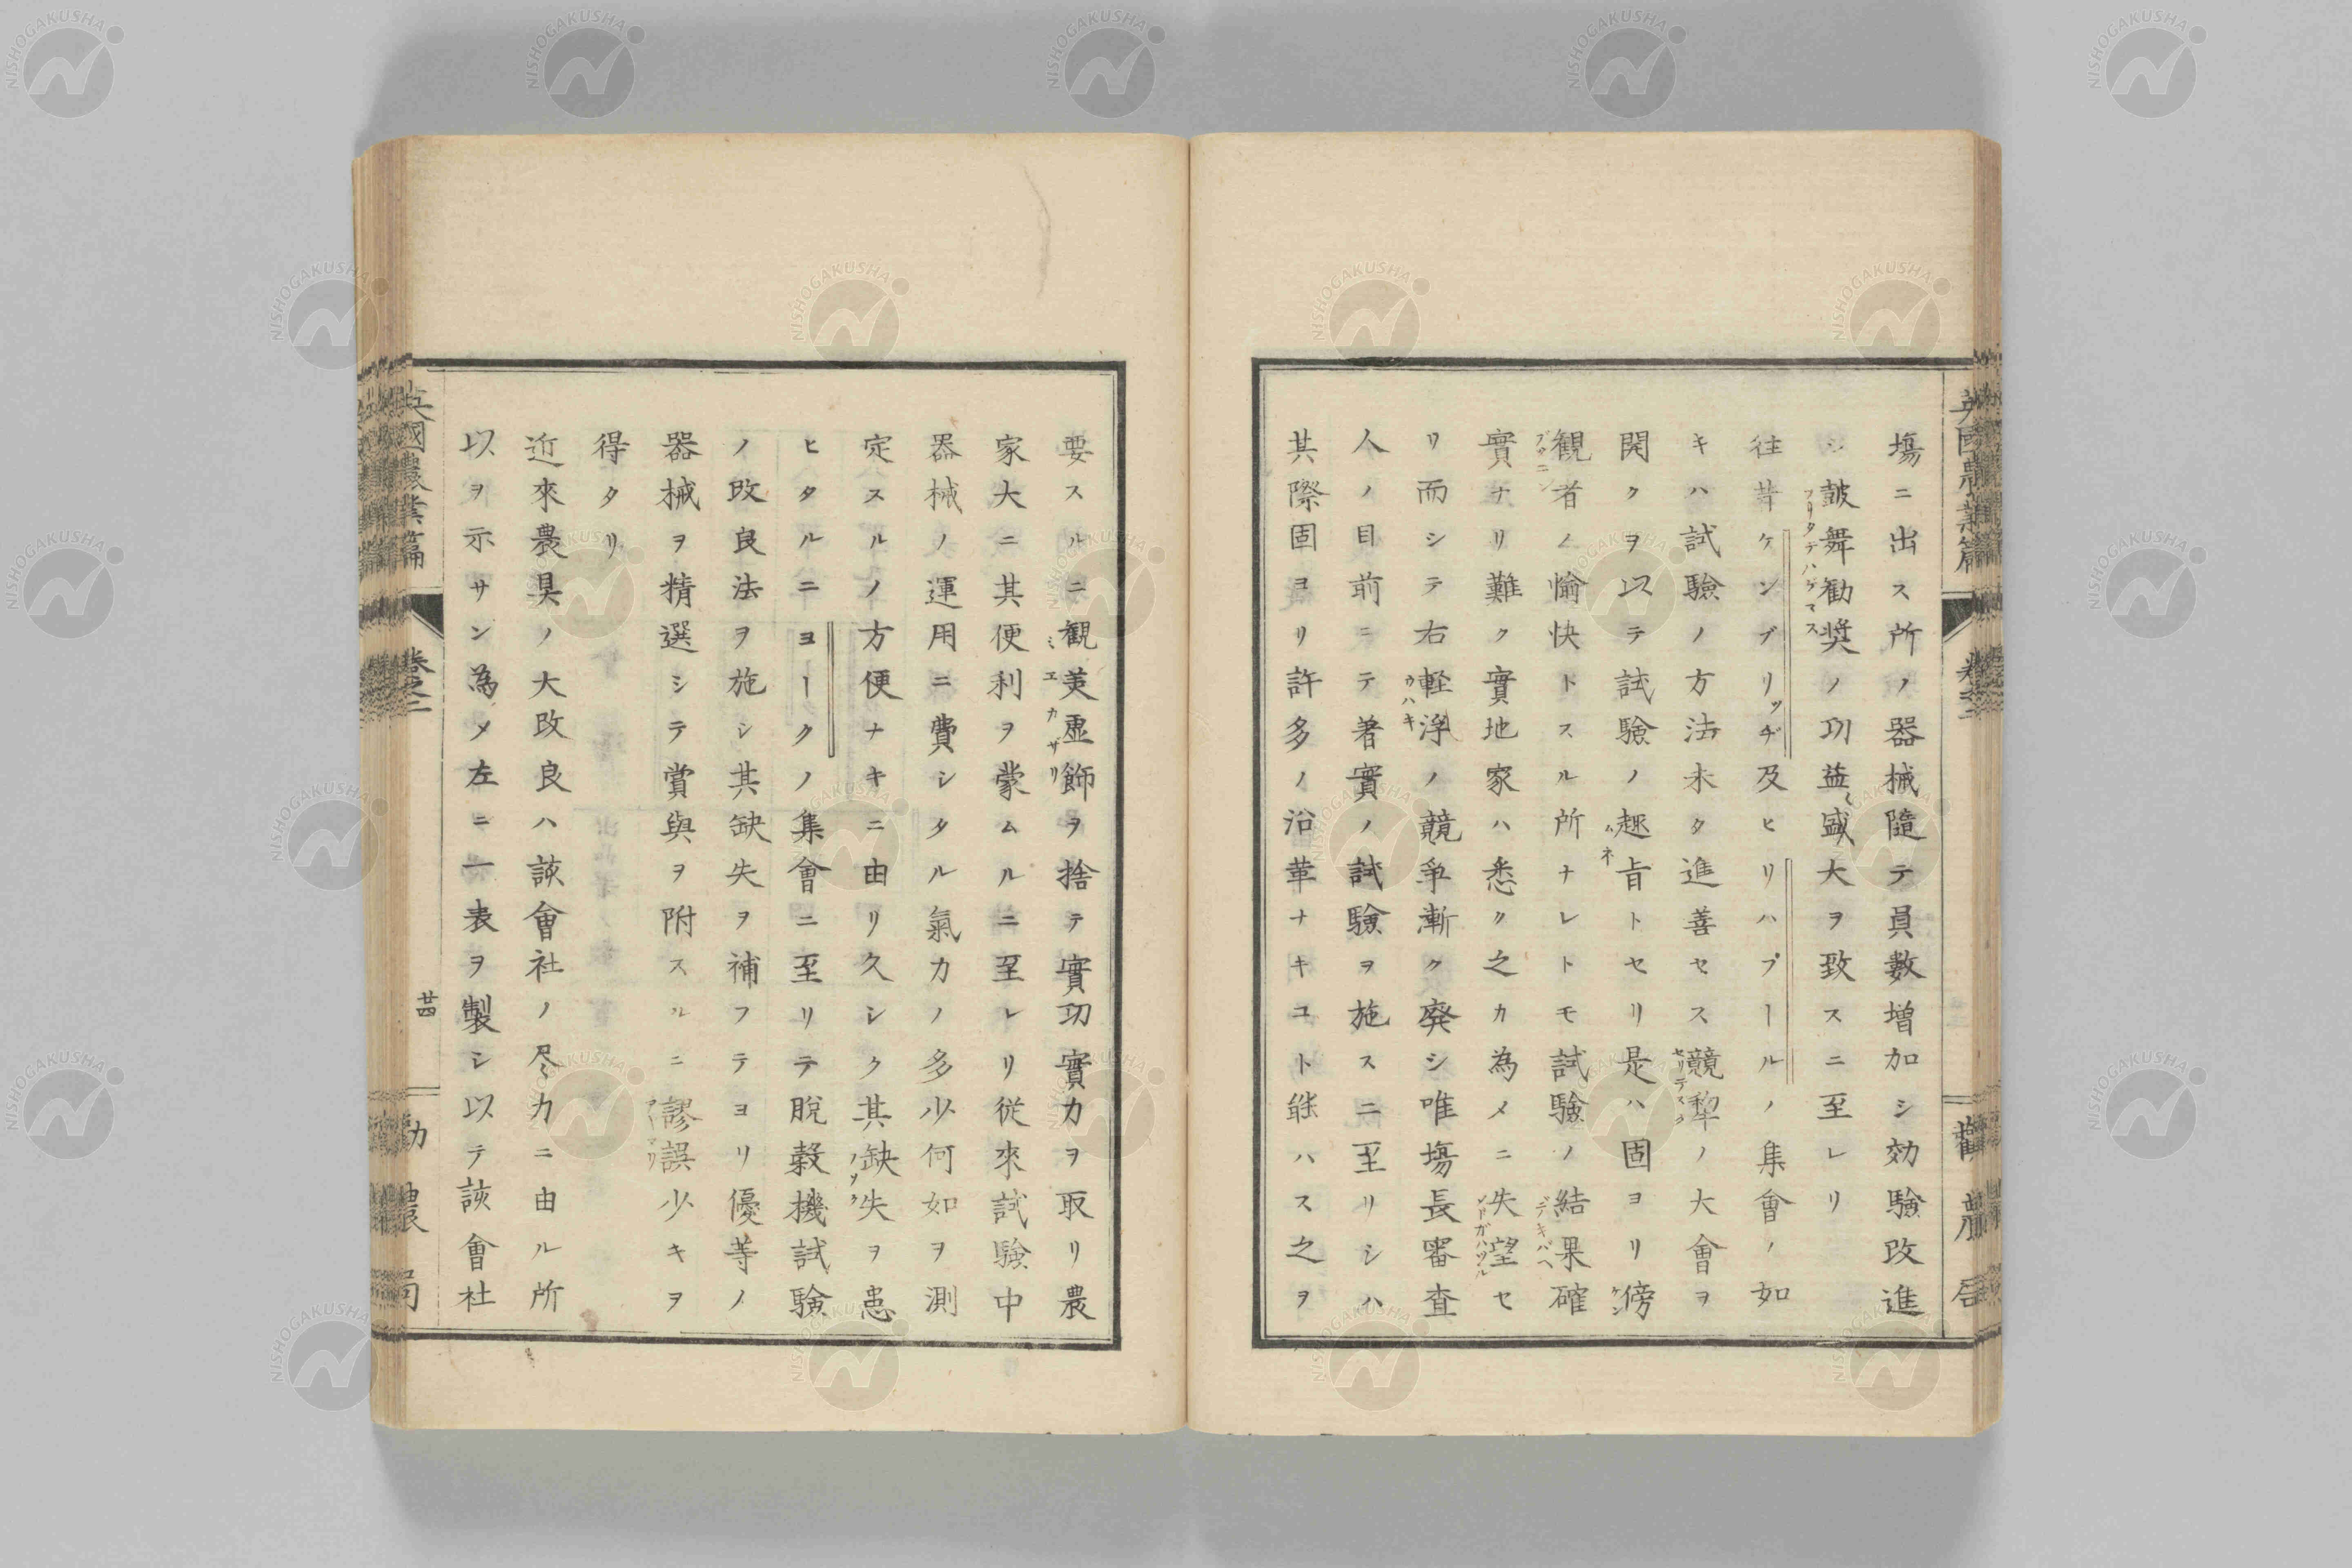 英國農業篇 卷之二 勸農局
塲ニ出ス所ノ器械隨テ員數増加シ効驗改進
シ皷舞勧奨ノ功益〻盛大ヲ致スニ至レリ
フリタテハゲマス
往昔ケンブリッヂ及ヒリハプールノ集會ノ如
キハ試驗ノ方法未タ進善セス競犂ノ大會ヲ
セリテスク
開クヲ以テ試驗ノ趣旨トセリ是ハ固ヨリ傍
ムネ
ケン
観者ノ愉快トスル所ナレトモ試驗ノ結果確
ブツニン
デキバヘ
實ナリ難ク實地家ハ悉ク之カ為メニ失望セ
リ而シテ右軽浮ノ競爭漸ク廃シ唯塲長審査
ウハキ
人ノ目前ニテ著實ノ試驗ヲ施スニ至リシハ
其際固ヨリ許多ノ沿革ナキコト能ハス之ヲ
要スルニ観美虚飾ヲ捨テ實功實力ヲ取リ農
ミエ
カザリ
家大ニ其便利ヲ蒙ムルニ至レリ従來試験中
器械ノ運用ニ費シタル氣力ノ多少何如ヲ測
定スルノ方便ナキニ由リ久シク其缺失ヲ患
ヒタルニヨークノ集會ニ至リテ脱穀機試験
ノ改良法ヲ施シ其缺失ヲ補フテヨリ優等ノ
器械ヲ精選シテ賞與ヲ附スルニ謬誤少キヲ
アヤマリ
得タリ
近來農具ノ大改良ハ該會社ノ尽力ニ由ル所
以ヲ示サン為メ左ニ一表ヲ製シ以テ該會社
英國農業篇 卷之二 廿四 勸農局
NISHOGAKUSHA